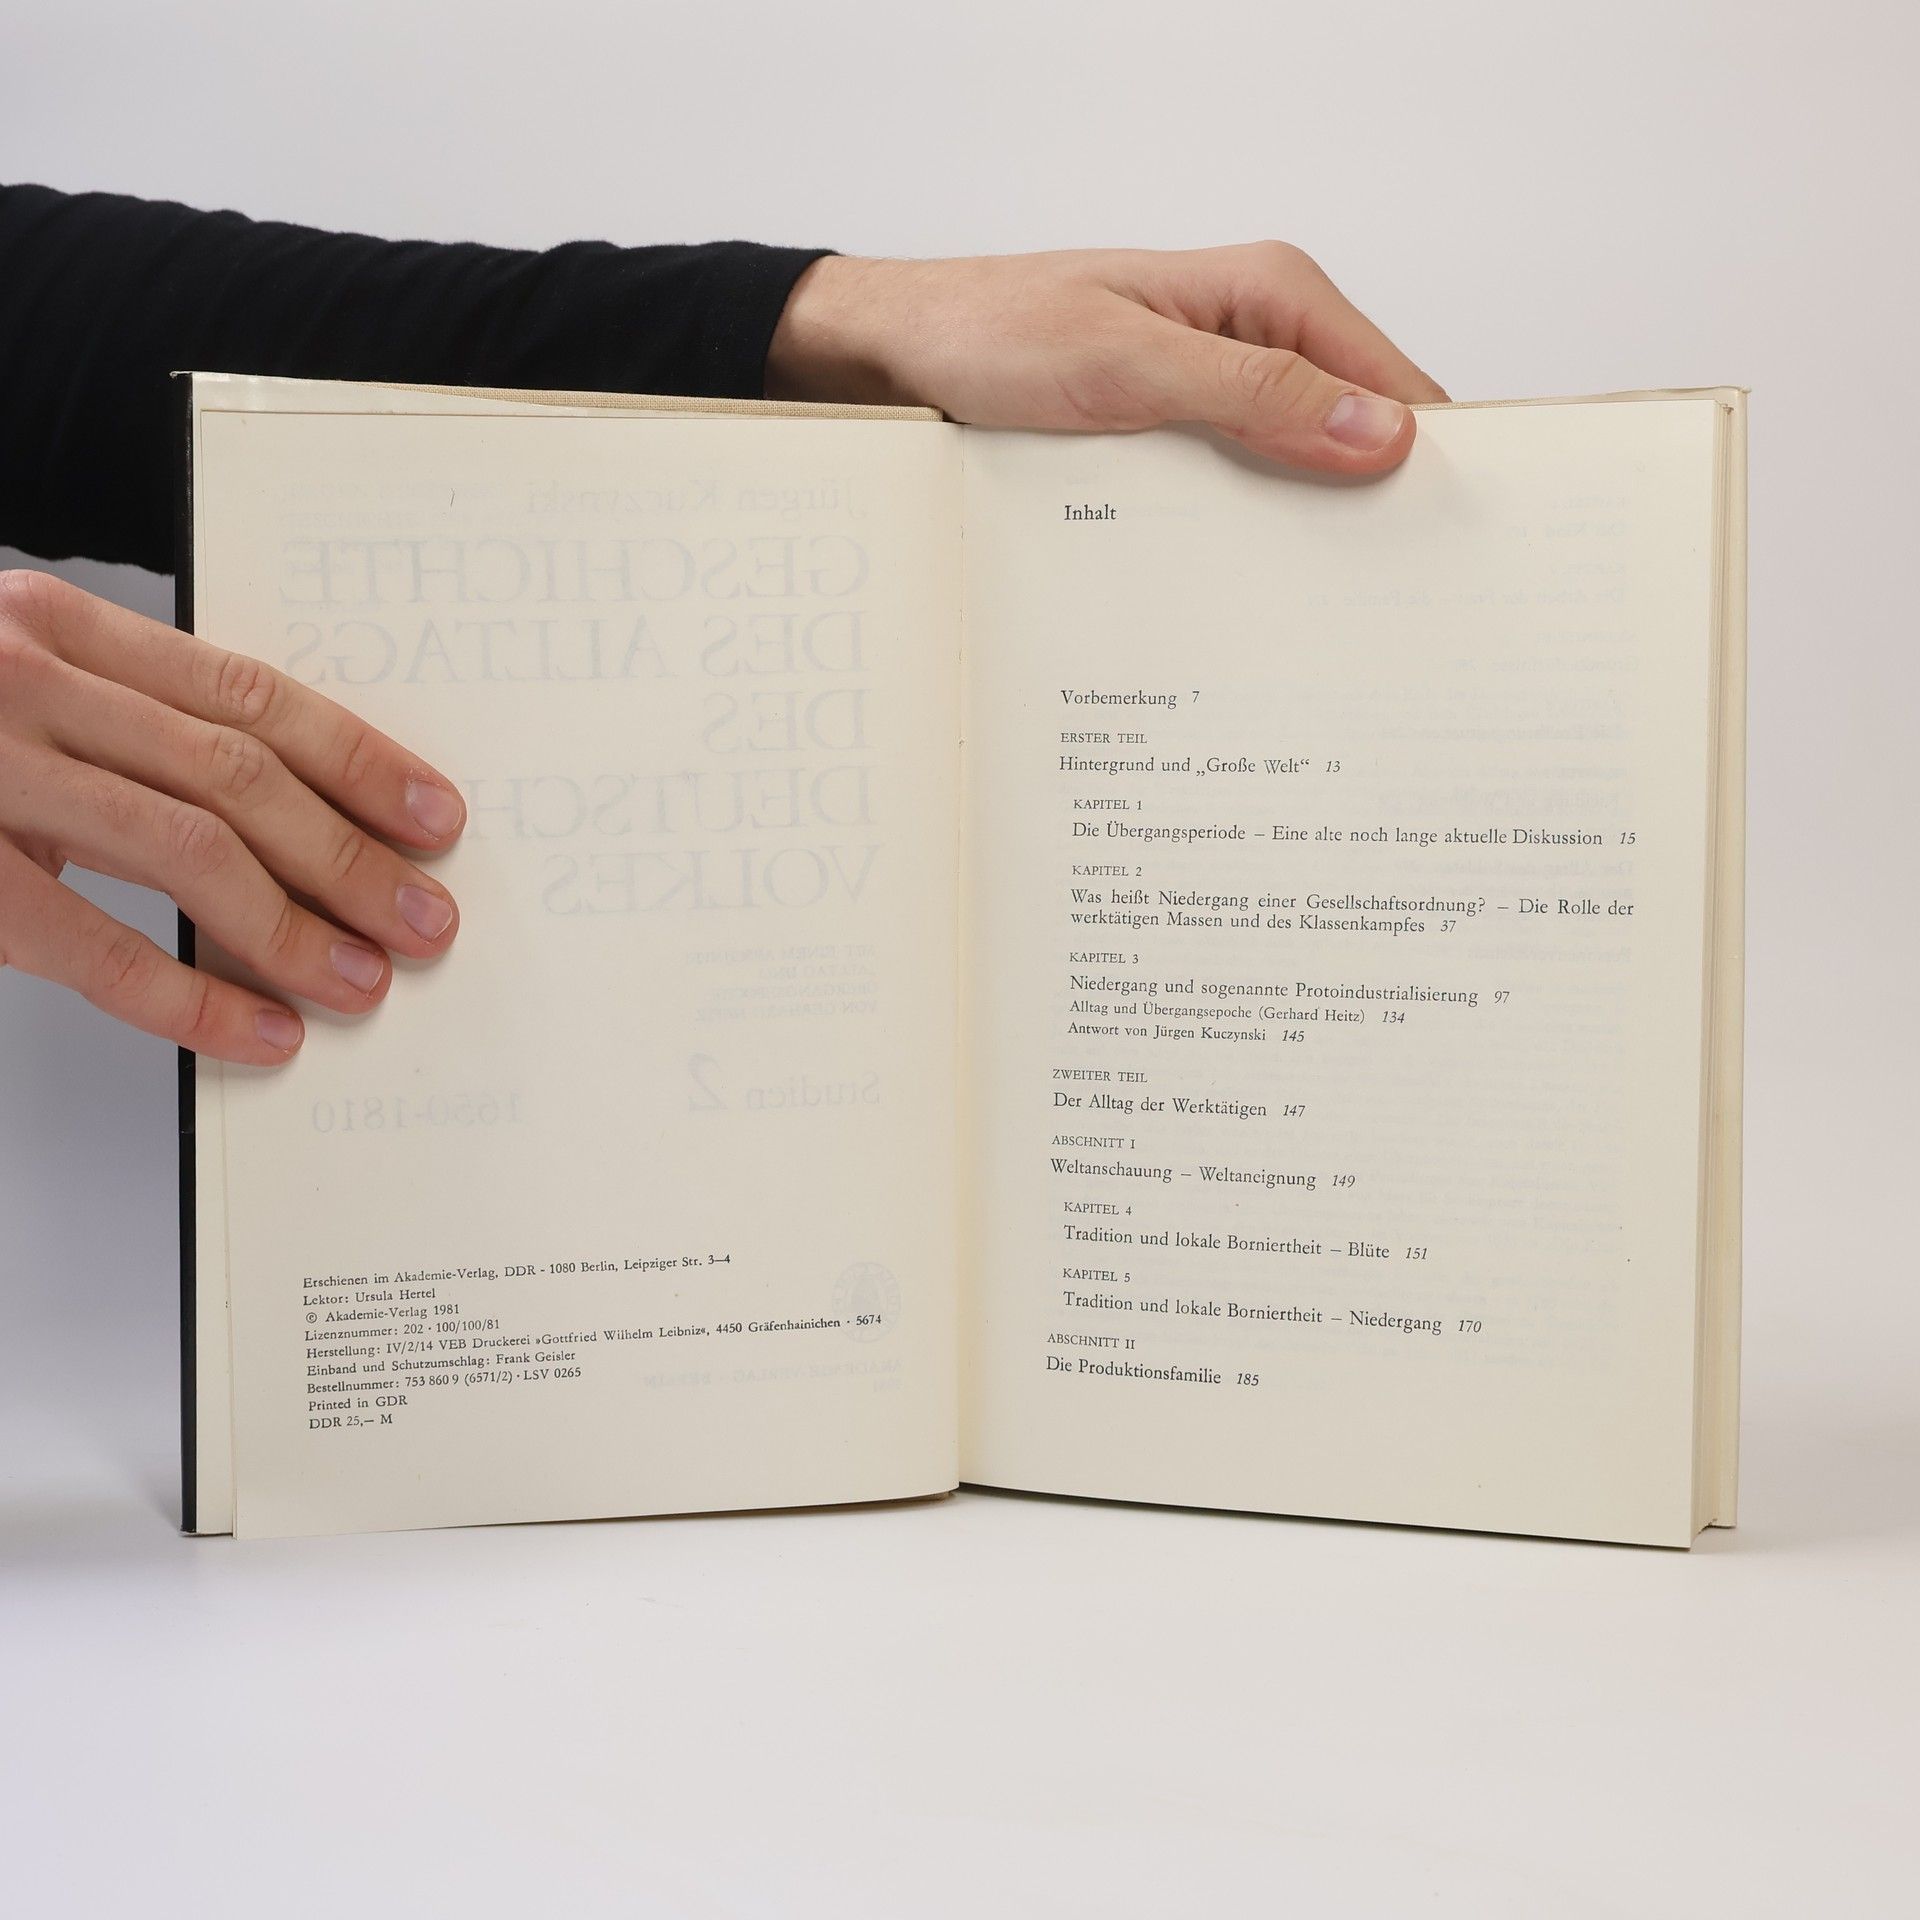 Jürgen Kuczynski
GESCHICHTE
DES ALLTAGS
DES
DEUTSCH
VOLKES
Studien 2
1650-1810
Erschienen im Akademie-Verlag, DDR - 1080 Berlin, Leipziger Str. 3—4
Lektor: Ursula Hertel
© Akademie-Verlag 1981
Lizenznummer: 202 · 100/100/81
Herstellung: IV/2/14 VEB Druckerei »Gottfried Wilhelm Leibniz«, 4450 Gräfenhainichen · 5674
Einband und Schutzumschlag: Frank Geisler
Bestellnummer: 753 860 9 (6571/2) · LSV 0265
Printed in GDR
DDR 25,— M
Inhalt
Vorbemerkung 7
ERSTER TEIL
Hintergrund und „Große Welt“ 13
KAPITEL 1
Die Übergangsperiode – Eine alte noch lange aktuelle Diskussion 15
KAPITEL 2
Was heißt Niedergang einer Gesellschaftsordnung? – Die Rolle der
werktätigen Massen und des Klassenkampfes 37
KAPITEL 3
Niedergang und sogenannte Protoindustrialisierung 97
Alltag und Übergangsepoche (Gerhard Heitz) 134
Antwort von Jürgen Kuczynski 145
ZWEITER TEIL
Der Alltag der Werktätigen 147
ABSCHNITT I
Weltanschauung – Weltaneignung 149
KAPITEL 4
Tradition und lokale Borniertheit – Blüte 151
KAPITEL 5
Tradition und lokale Borniertheit – Niedergang 170
ABSCHNITT II
Die Produktionsfamilie 185